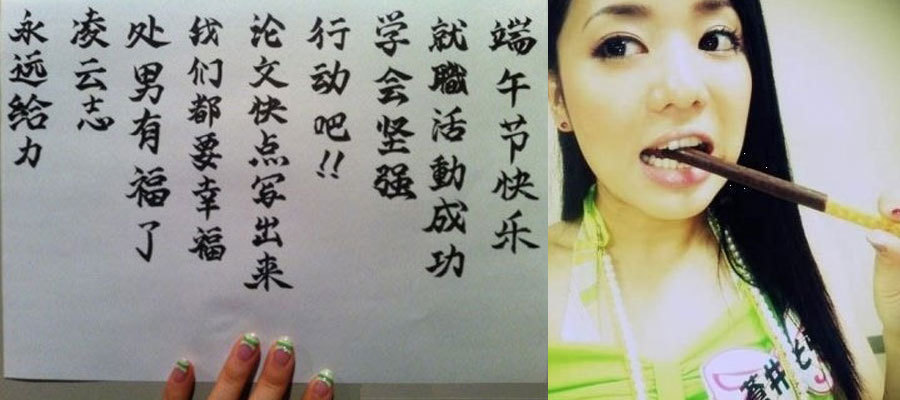 端午节快乐
就職活動成功
学会坚强
行动吧!!
论文快点写出来
我们都要幸福
处男有福了
凌云志
永远给力
蒼井そ